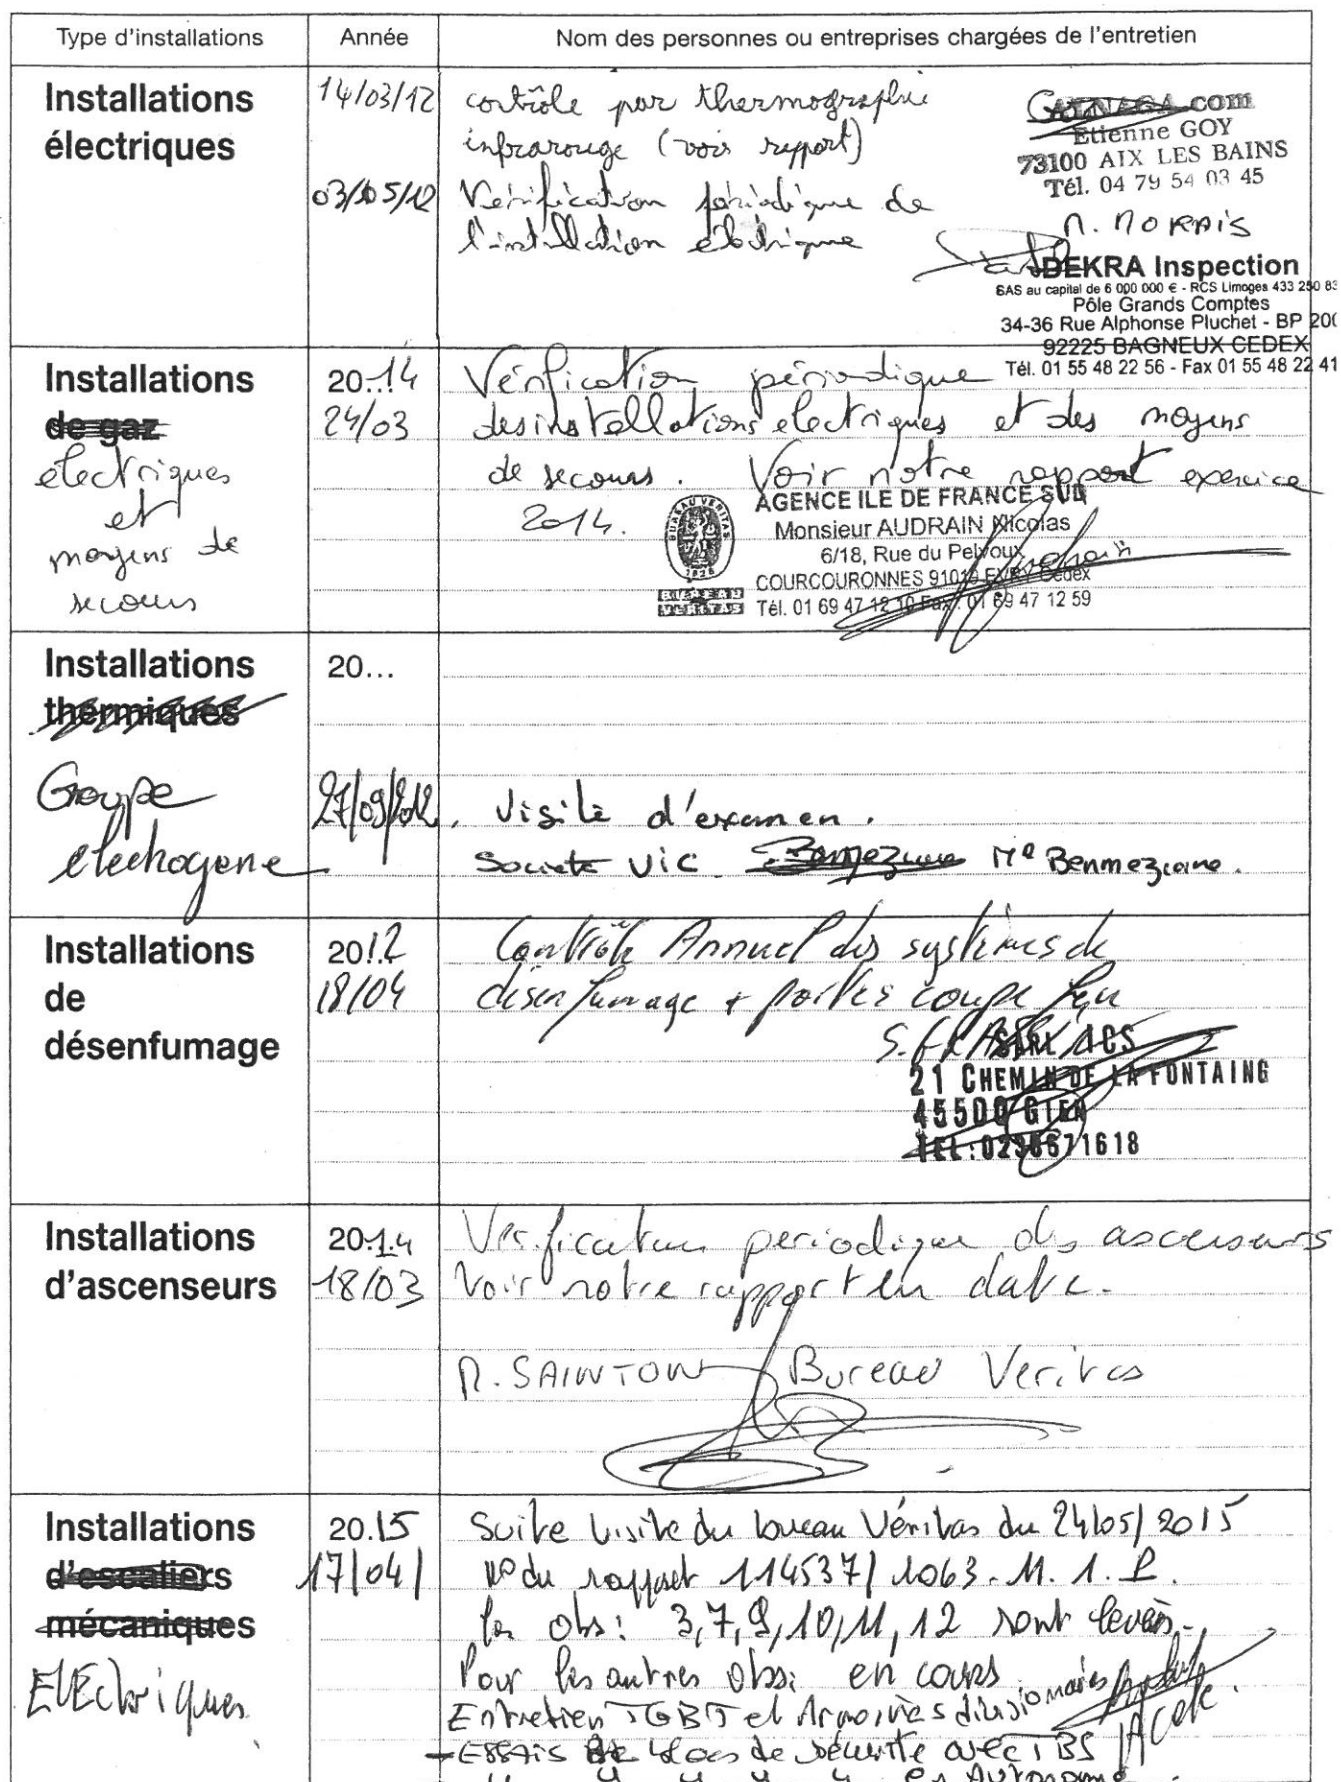 Type d'installations Année Nom des personnes ou entreprises chargées de l'entretien
Installations
électriques
14/03/12 contrôle par thermographie
infrarouge (voir rapport)
.com
Etienne GOY
73100 AIX LES BAINS
Tél. 04 79 54 03 45
03/05/12 Vérification périodique de
l'installation électrique
M. MORAIS
DEKRA Inspection
SAS au capital de 6 000 000 € - RCS Limoges 433 250 83
Pôle Grands Comptes
34-36 Rue Alphonse Pluchet - BP 200
92225 BAGNEUX CEDEX
Tél. 01 55 48 22 56 - Fax 01 55 48 22 41
Installations
de gaz
électriques
et
moyens de
secours
20.14 Vérification périodique
24/03 des installations électriques et des moyens
de secours. Voir notre rapport exercice
2014.
BUREAU VERITAS
1828
BUREAU
VERITAS
AGENCE ILE DE FRANCE SUD
Monsieur AUDRAIN Nicolas
6/18, Rue du Pelvoux
COURCOURONNES 91019 EVRY Cedex
Tél. 01 69 47 12 10 Fax. 01 69 47 12 59
Installations
thermiques
20...
Groupe
électrogène
27/09/2012. Visite d'examen.
Société VIC Benmeziane Mr Benmeziane.
Installations
de
désenfumage
2012 Contrôle Annuel des systèmes de
18/04 désenfumage + portes coupe feu
SARL ACS
21 CHEMIN DE LA FONTAING
45500 GIEN
TEL:0238671618
Installations
d'ascenseurs
20.1.4 Vérification periodique des ascenseurs
18/03 Voir notre rapport en date.
M. SAINTON Bureau Veritas
Installations
d'escaliers
mécaniques
ElEctriques
20.15 Suite visite du bureau Véritas du 24/05/2015
17/04/ N° du rapport 114537/1063. M. 1. P.
les obs: 3,7,9,10,11,12 sont levées.
Pour les autres obs: en cours
Entretien TGBT et Armoires divisionnaires
- ESSAIS de blocs de sécurité avec TBS
" " " " " Autonome